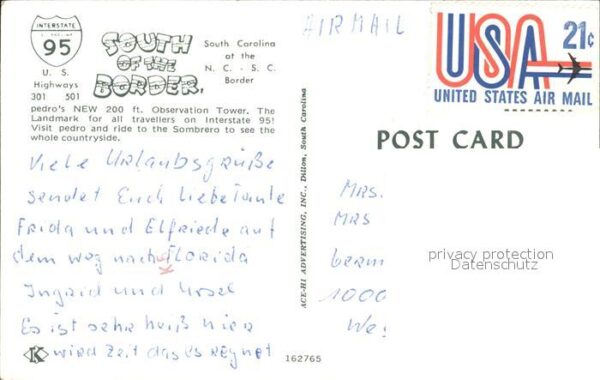 INTERSTATE
95
U. S.
Highways
301 501
SOUTH
OF THE
BORDER.
South Carolina
at the
N. C. - S. C.
Border
pedro's NEW 200 ft. Observation Tower. The
Landmark for all travellers on Interstate 95!
Visit pedro and ride to the Sombrero to see the
whole countryside.
Viele Urlaubsgrüße
sendet Euch liebe Tante
Frida und Elfriede auf
dem weg nach Florida
Ingrid und Ursel
Es ist sehr heiß hier
wird Zeit das es regnet
K
162765
ACE-HI ADVERTISING, INC., Dillon, South Carolina
AIR MAIL
USA 21c
UNITED STATES AIR MAIL
POST CARD
MRS.
MRS
berm
1000
We
privacy protection
Datenschutz